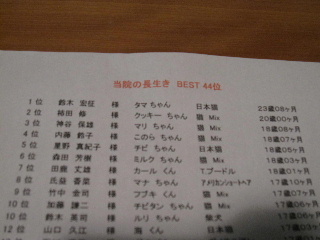 当院の長生き BEST 44位
1 位 鈴木 宏征 様 タマ ちゃん 日本猫 23歳08ヶ月
2 位 柿田 修 様 クッキー ちゃん 猫 Mix 20歳00ヶ月
3 位 神谷 保雄 様 マリ ちゃん 猫 Mix 18歳08ヶ月
4 位 内藤 鈴子 様 このら ちゃん 猫 Mix 18歳07ヶ月
5 位 星野 真紀子 様 チビ ちゃん 日本猫 18歳05ヶ月
6 位 森田 芳樹 様 ミルク ちゃん 猫 Mix 18歳03ヶ月
7 位 田鹿 丈雄 様 カール くん T.プードル 18歳02ヶ月
8 位 氏益 香菜 様 マナ ちゃん アメリカンショートヘア 18歳01ヶ月
9 位 竹中 金司 様 フブキ くん 猫 Mix 17歳
10 位 加藤 謙二 様 チビタン ちゃん 猫 Mix 17歳
10 位 鈴木 英司 様 ルリ ちゃん 柴犬 17歳
12 位 山口 久江 様 海 くん 日本